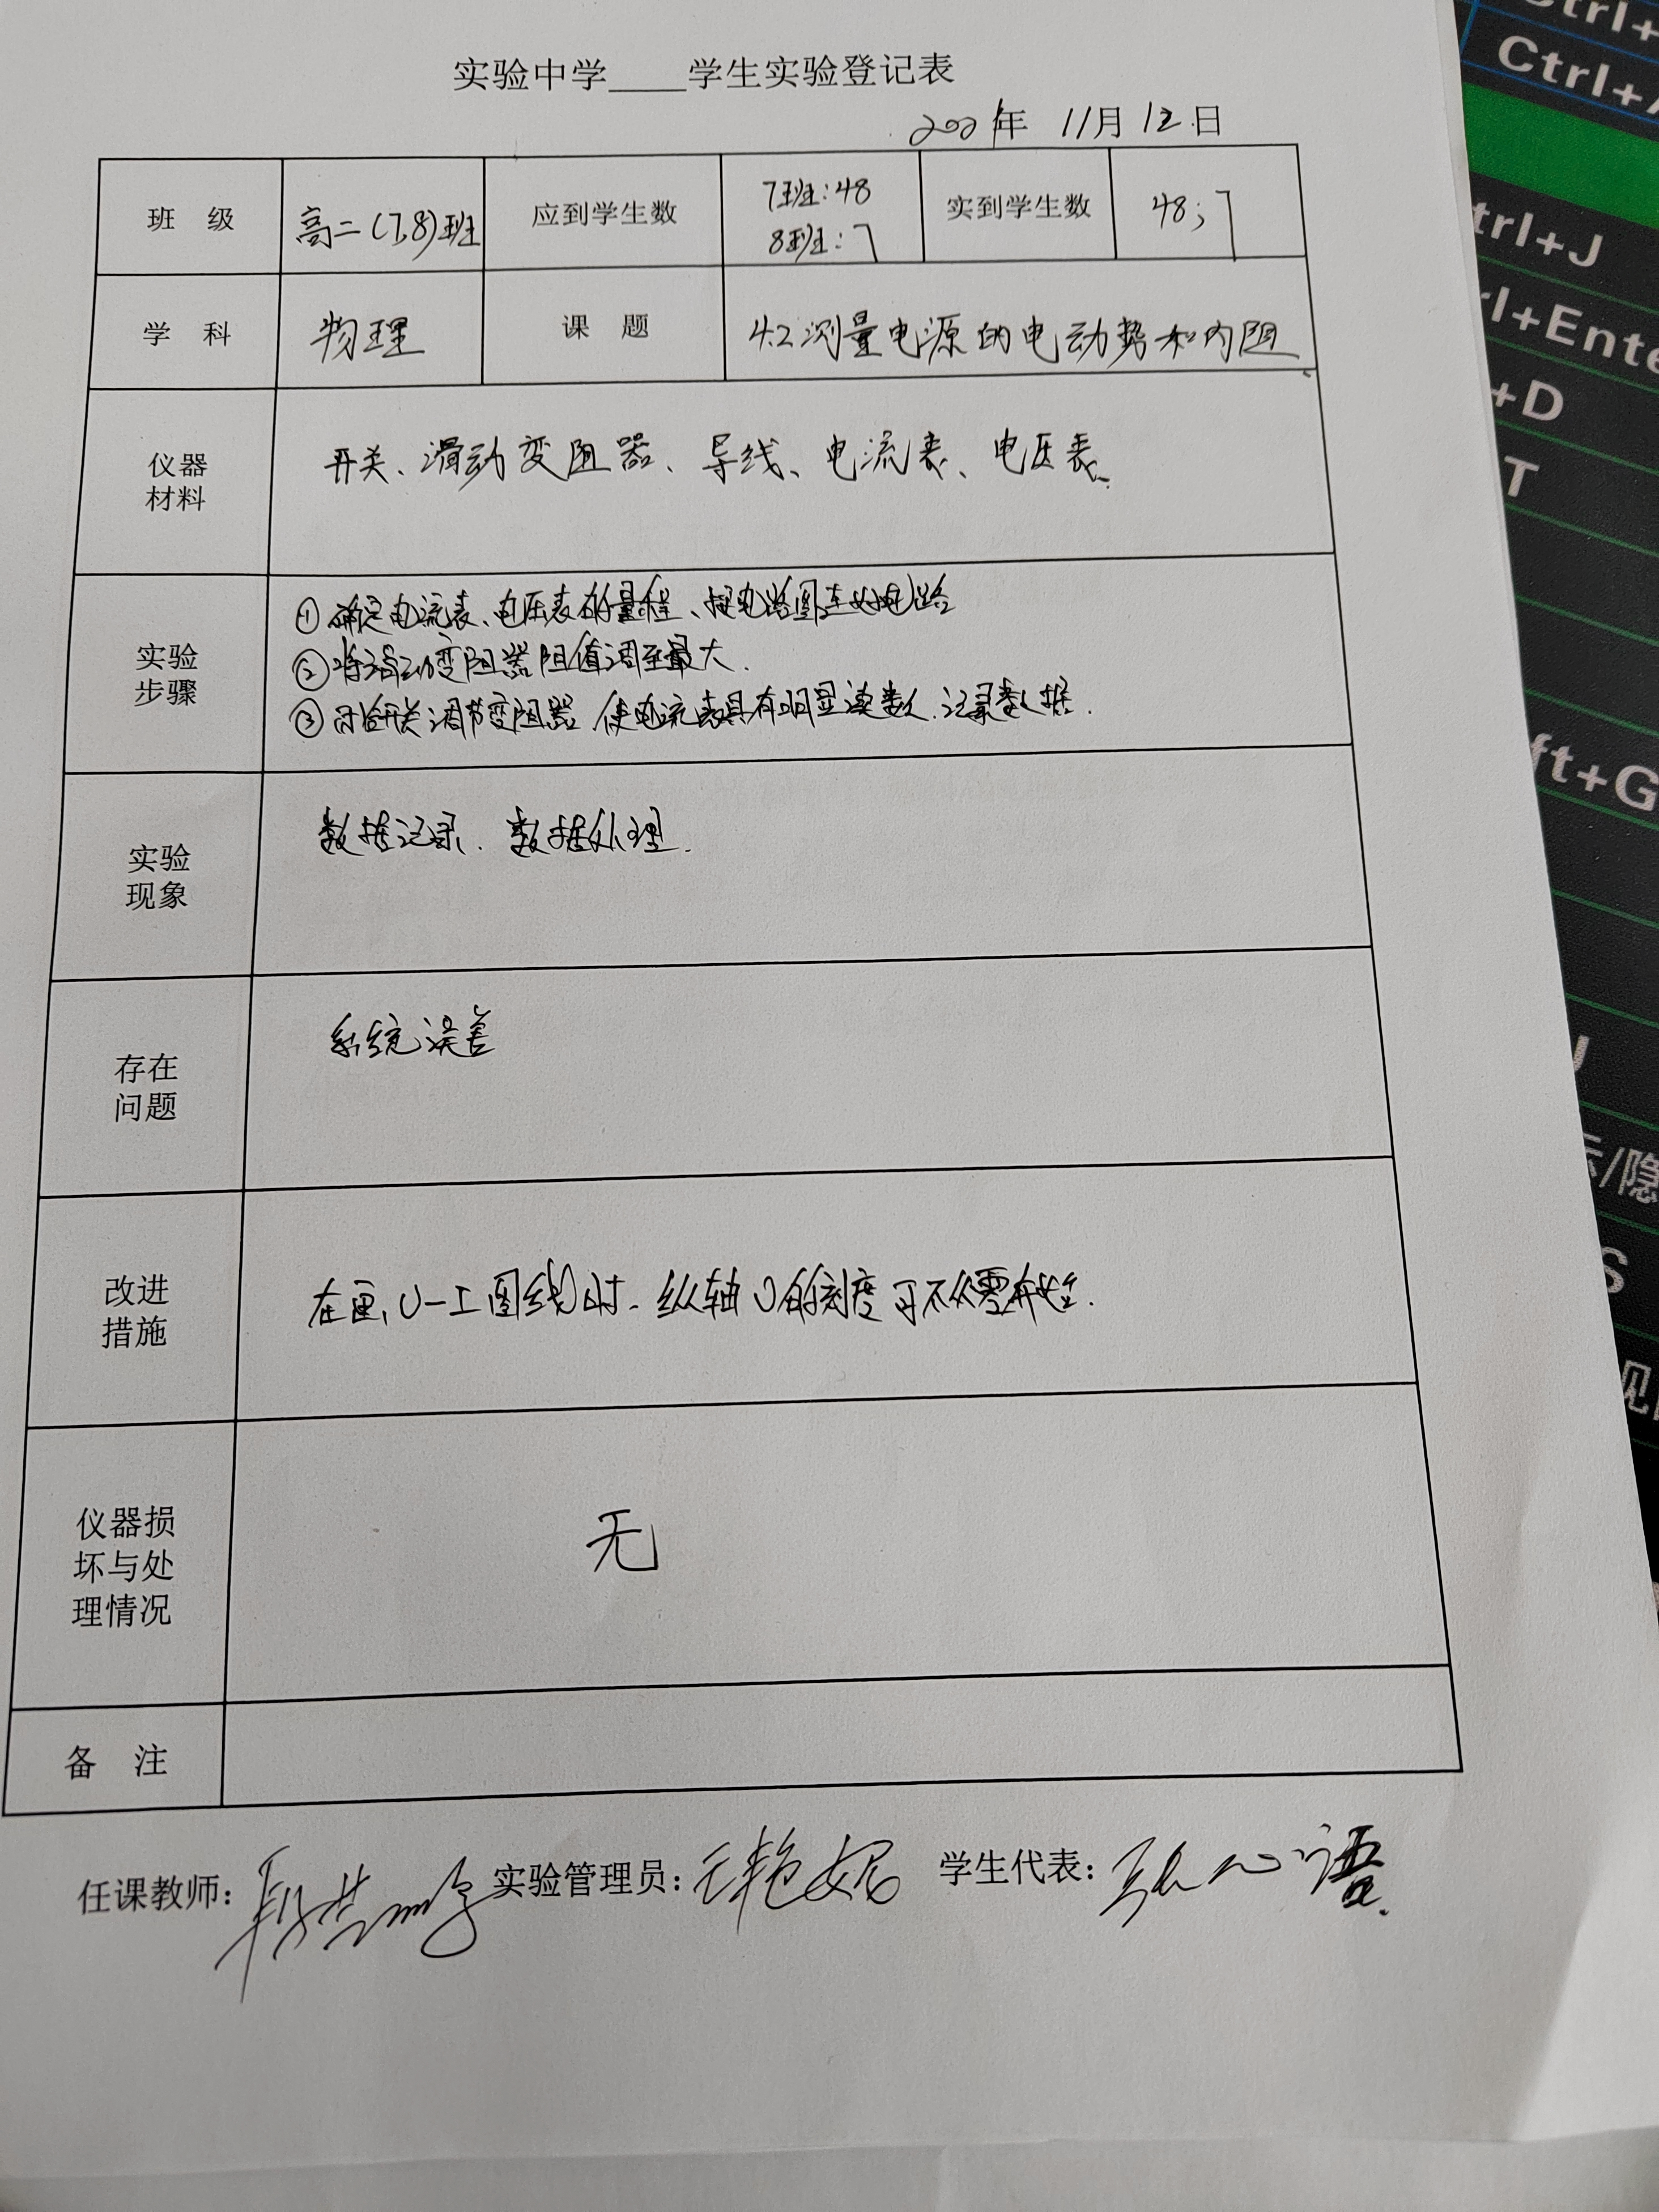 实验中学____学生实验登记表
年 11月 12日
班 级 高二(7,8)班 应到学生数 7班:48 8班:7 实到学生数 48;7
学 科 物理 课 题 4.2测量电源的电动势和内阻
仪器
材料
开关、滑动变阻器、导线、电流表、电压表.
实验
步骤
①确定电流表、电压表的量程、按电路图连好电路
②将滑动变阻器阻值调至最大.
③闭合开关调节变阻器,使电流表具有明显读数.记录数据.
实验
现象
数据记录.数据处理.
存在
问题
系统误差
改进
措施
在画U-I图线时.纵轴U的刻度可不从零开始.
仪器损
坏与处
理情况
无
备 注
任课教师: 实验管理员: 学生代表:
Ctrl+
Ctrl+A
trl+J
rl+Ente
+D
T
ft+G
示/隐
S
见